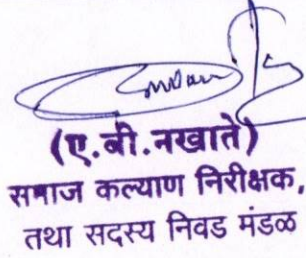 (ए.बी.नखाते)
समाज कल्याण निरीक्षक,
तथा सदस्य निवड मंडळ